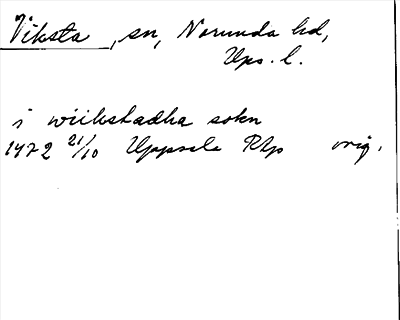 Viksta, sn, Norunda hd,
Ups. l.
i wiikstadha sokn
1472 21/10 Uppsala RAp orig.